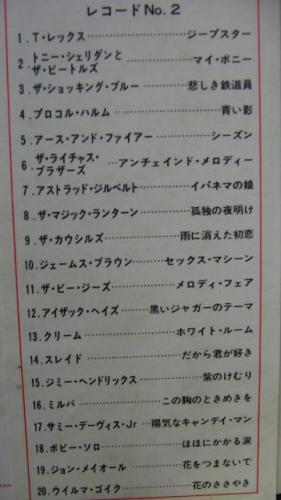 レコードNo.2
1.T・レックス……ジープスター
2.トニー・シェリダンと
ザ・ビートルズ……マイ・ボニー
3.ザ・ショッキング・ブルー……悲しき鉄道員
4.プロコル・ハルム……青い影
5.アース・アンド・ファイアー……シーズン
6.ザ・ライチャス・
ブラザーズ……アンチェインド・メロディー
7.アストラッド・ジルベルト……イパネマの娘
8.ザ・マジック・ランターン……孤独の夜明け
9.ザ・カウシルズ……雨に消えた初恋
10.ジェームス・ブラウン……セックス・マシーン
11.ザ・ビー・ジーズ……メロディ・フェア
12.アイザック・ヘイズ……黒いジャガーのテーマ
13.クリーム……ホワイト・ルーム
14.スレイド……だから君が好き
15.ジミー・ヘンドリックス……紫のけむり
16.ミルバ……この胸のときめきを
17.サミー・デーヴィス・Jr……陽気なキャンデイ・マン
18.ボビー・ソロ……ほほにかかる涙
19.ジョン・メイオール……花をつまないで
20.ウイルマ・ゴイク……花のささやき